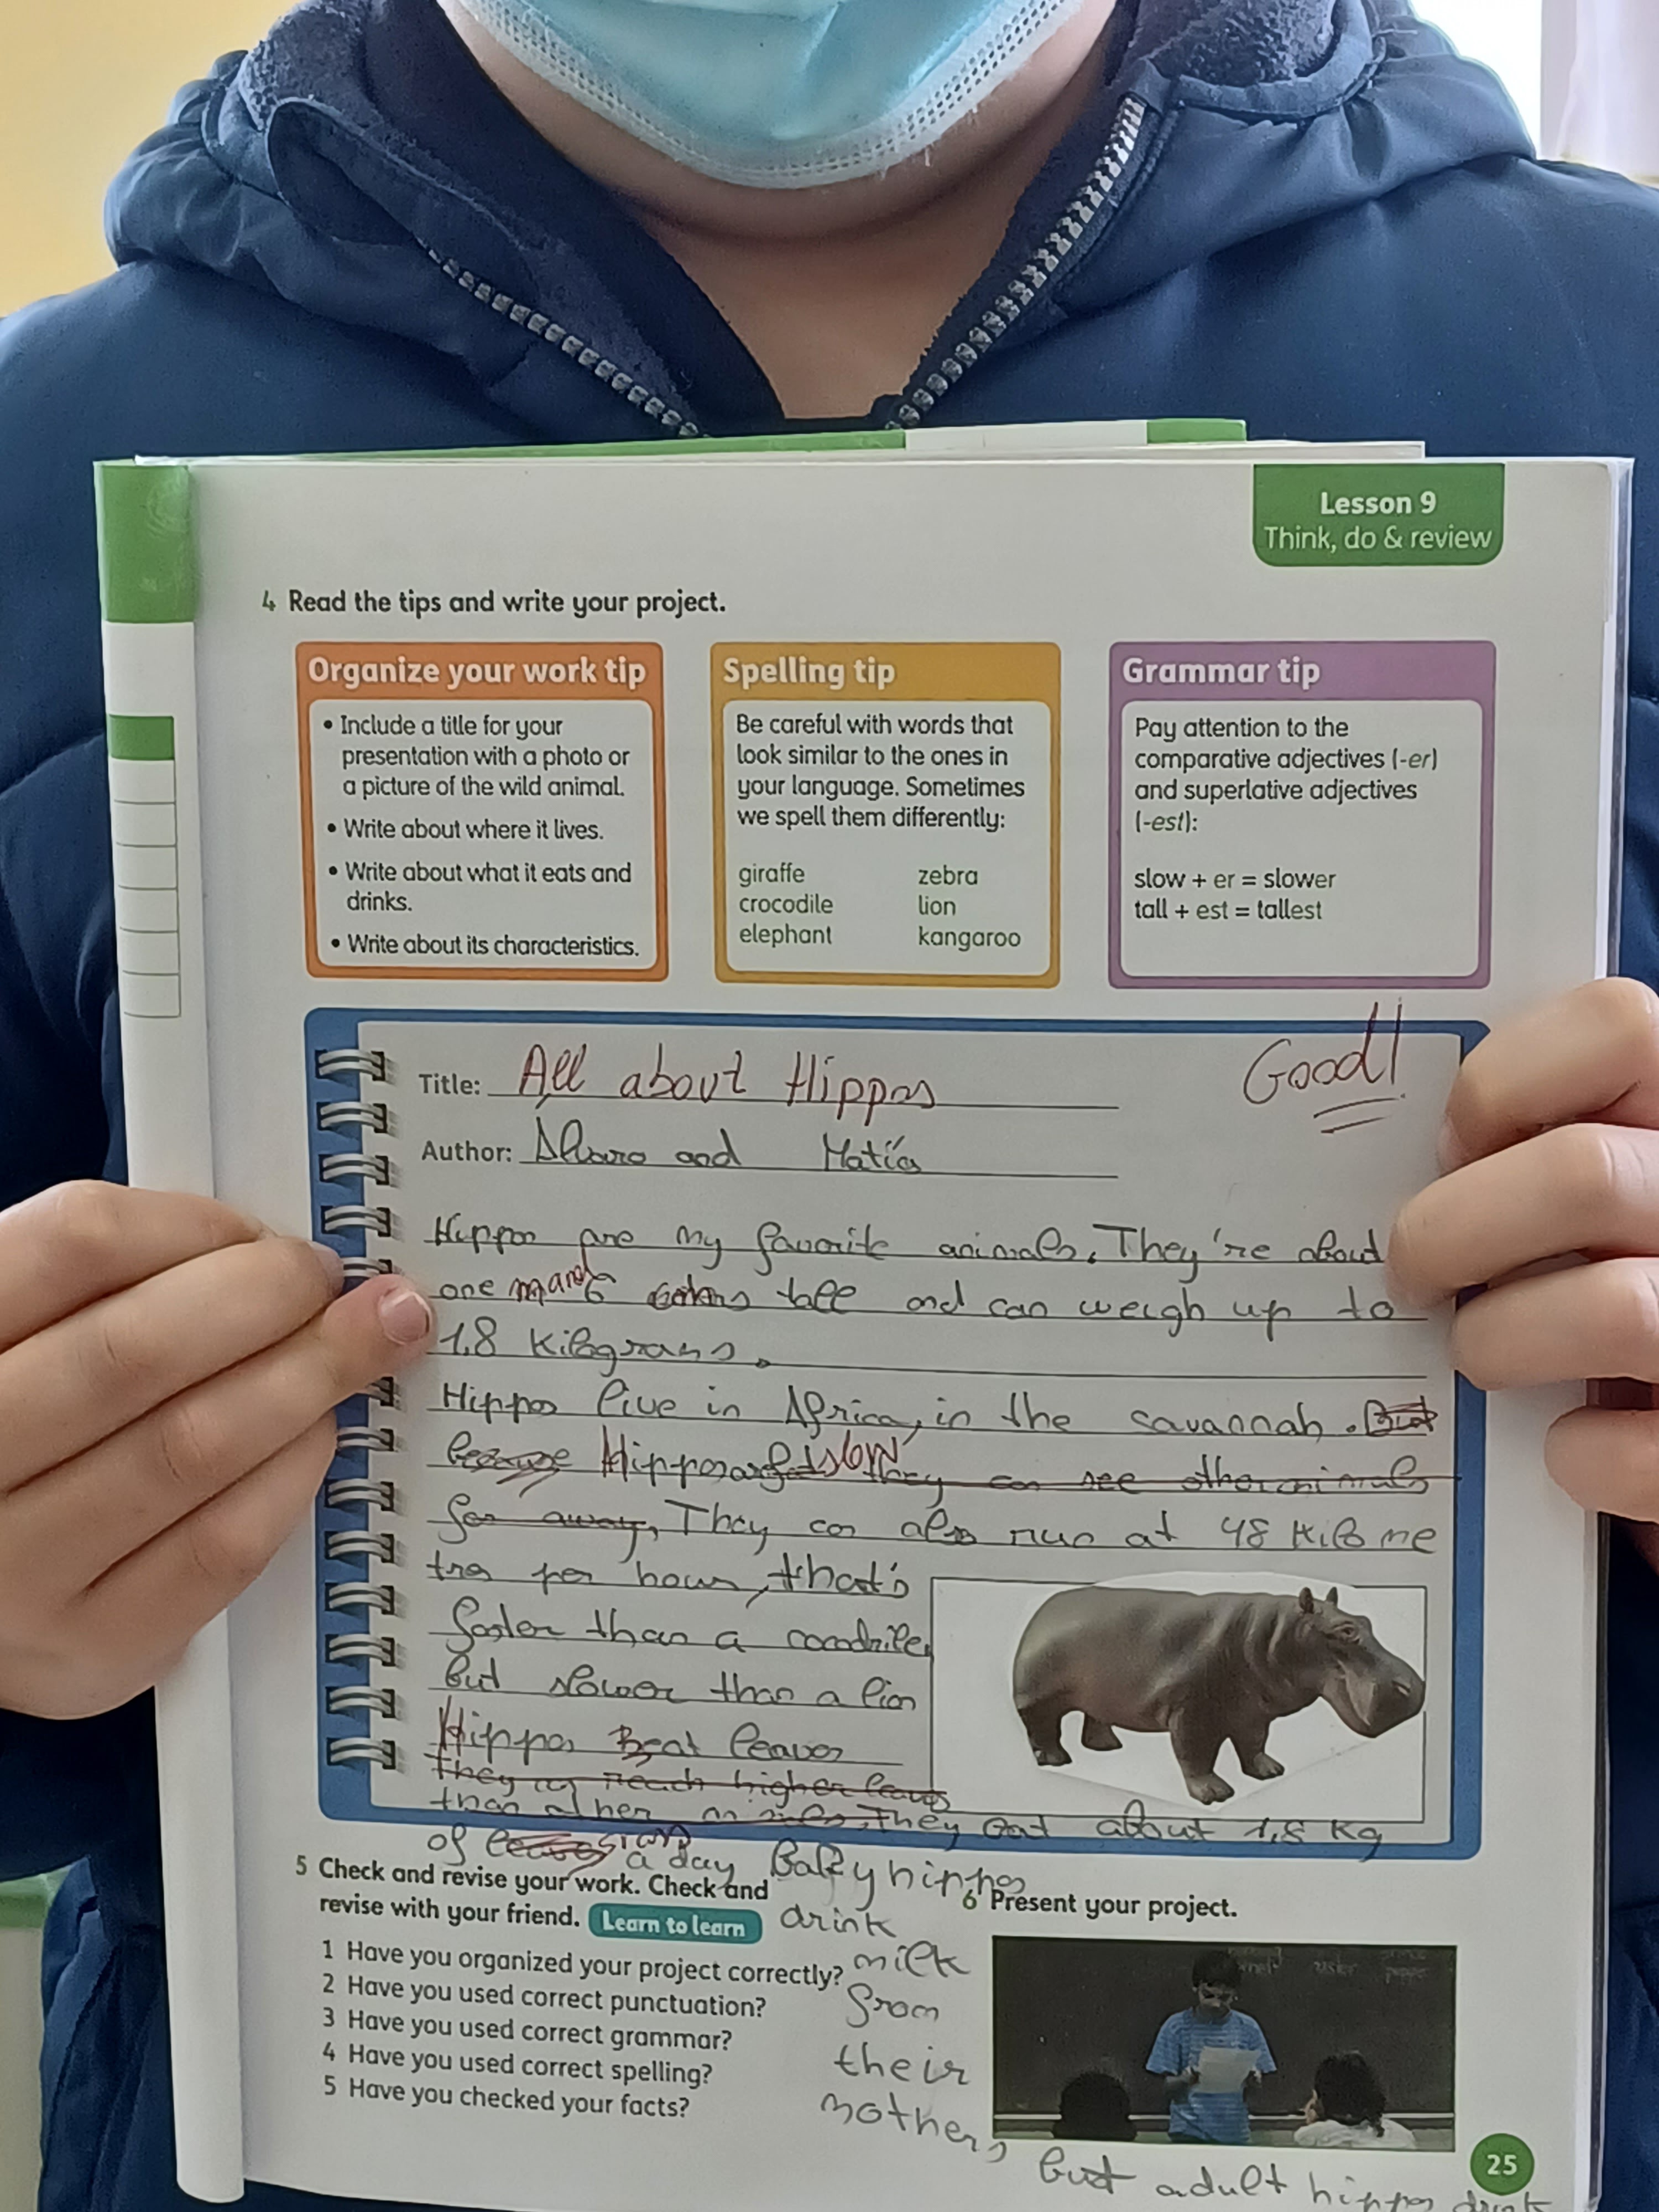 Lesson 9
Think, do & review
4 Read the tips and write your project.
Organize your work tip
• Include a title for your
presentation with a photo or
a picture of the wild animal.
• Write about where it lives.
• Write about what it eats and
drinks.
• Write about its characteristics.
Spelling tip
Be careful with words that
look similar to the ones in
your language. Sometimes
we spell them differently:
giraffe zebra
crocodile lion
elephant kangaroo
Grammar tip
Pay attention to the
comparative adjectives (-er)
and superlative adjectives
(-est):
slow + er = slower
tall + est = tallest
Good!
Title: All about Hippos
Author: Alvaro and Matías
Hippos are my favorite animals. They're about
one tall and can weigh up to
1,8 kilograms.
Hippos live in Africa, in the savannah. But
because Hippos are slow they can see other animals
far away, They can also run at 48 Kilo me
tres per hour, that's
faster than a cocodrile,
but slower than a lion
Hippos eat leaves
they can reach higher leaves
than other animals, They eat about 1,8 Kg
of leaves a day Baby hippos
drink
milk
from
their
mothers but adult hippos drink
5 Check and revise your work. Check and
revise with your friend. Learn to learn
1 Have you organized your project correctly?
2 Have you used correct punctuation?
3 Have you used correct grammar?
4 Have you used correct spelling?
5 Have you checked your facts?
6 Present your project.
25